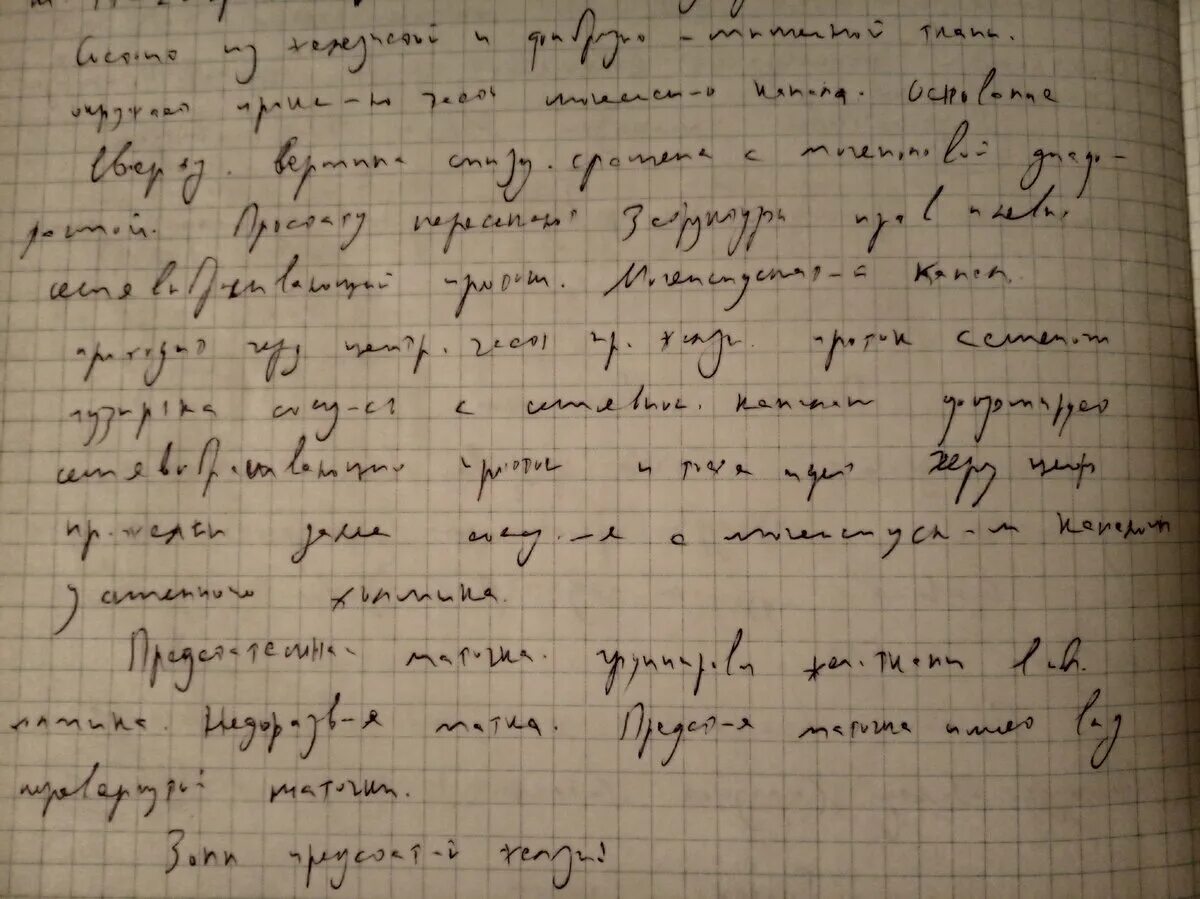 Состоит из железистой и фиброзно-мышечной ткани.
окружает прокс-ю часть мочеисп-о канала. Основание
Сверху. вершина снизу. сращена с мочеполовой диаф-
рагмой. Простату пересекают 3 структуры прав и лев.
семявыбрасывающий проток. Мочеиспускат-а канал
проходит через центр. часть пр. желез. проток семеного
пузырька соед-ся с семявын. каналом формирует
семявыбрасывающий проток и также идет через центр
пр. железы далее соед-я с мочеиспуск-м каналом
у семенного холмика.
Предстательная маточка. группиров жел. ткани
холмика. Недоразв-я матка. Предст-я маточка имеет вид
перевернутой маточки.
Зоны предстат-й железы